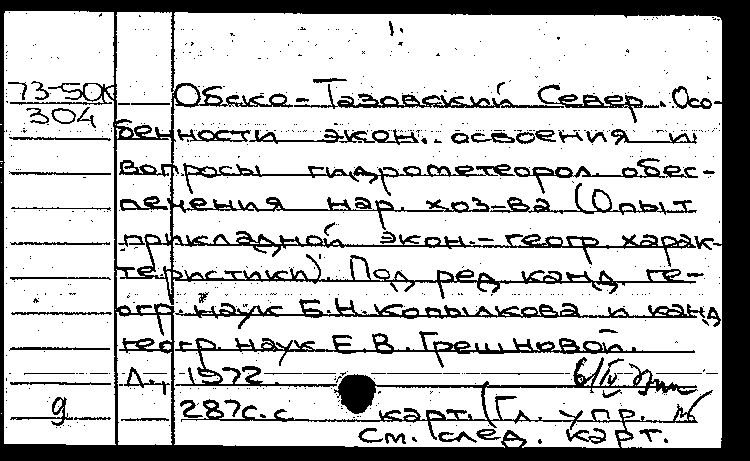 73-50К
304
Обско-Тазовский Север. Осо-
бенности экон. освоения и
вопросы гидрометеорол. обес-
печения нар. хоз-ва (Опыт
прикладной экон.-геогр. харак-
теристики). Под ред. канд. ге-
огр. наук Б.Н. Копылкова и канд
геогр. наук Е.В. Грешновой.
Л., 1972.
9
287с. с карт. (Гл. упр.
См. след. карт.